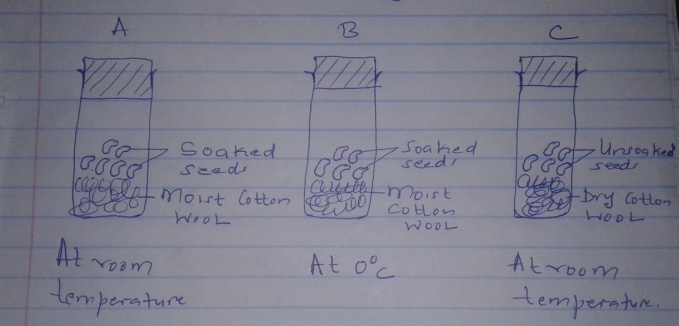 A
B
C
Soaked
seeds
Moist Cotton
WOOL
At room
temperature
Soaked
seeds
Moist
Cotton
WOOL
At 0°C
Unsoaked
seeds
Dry Cotton
WOOL
At room
temperature.